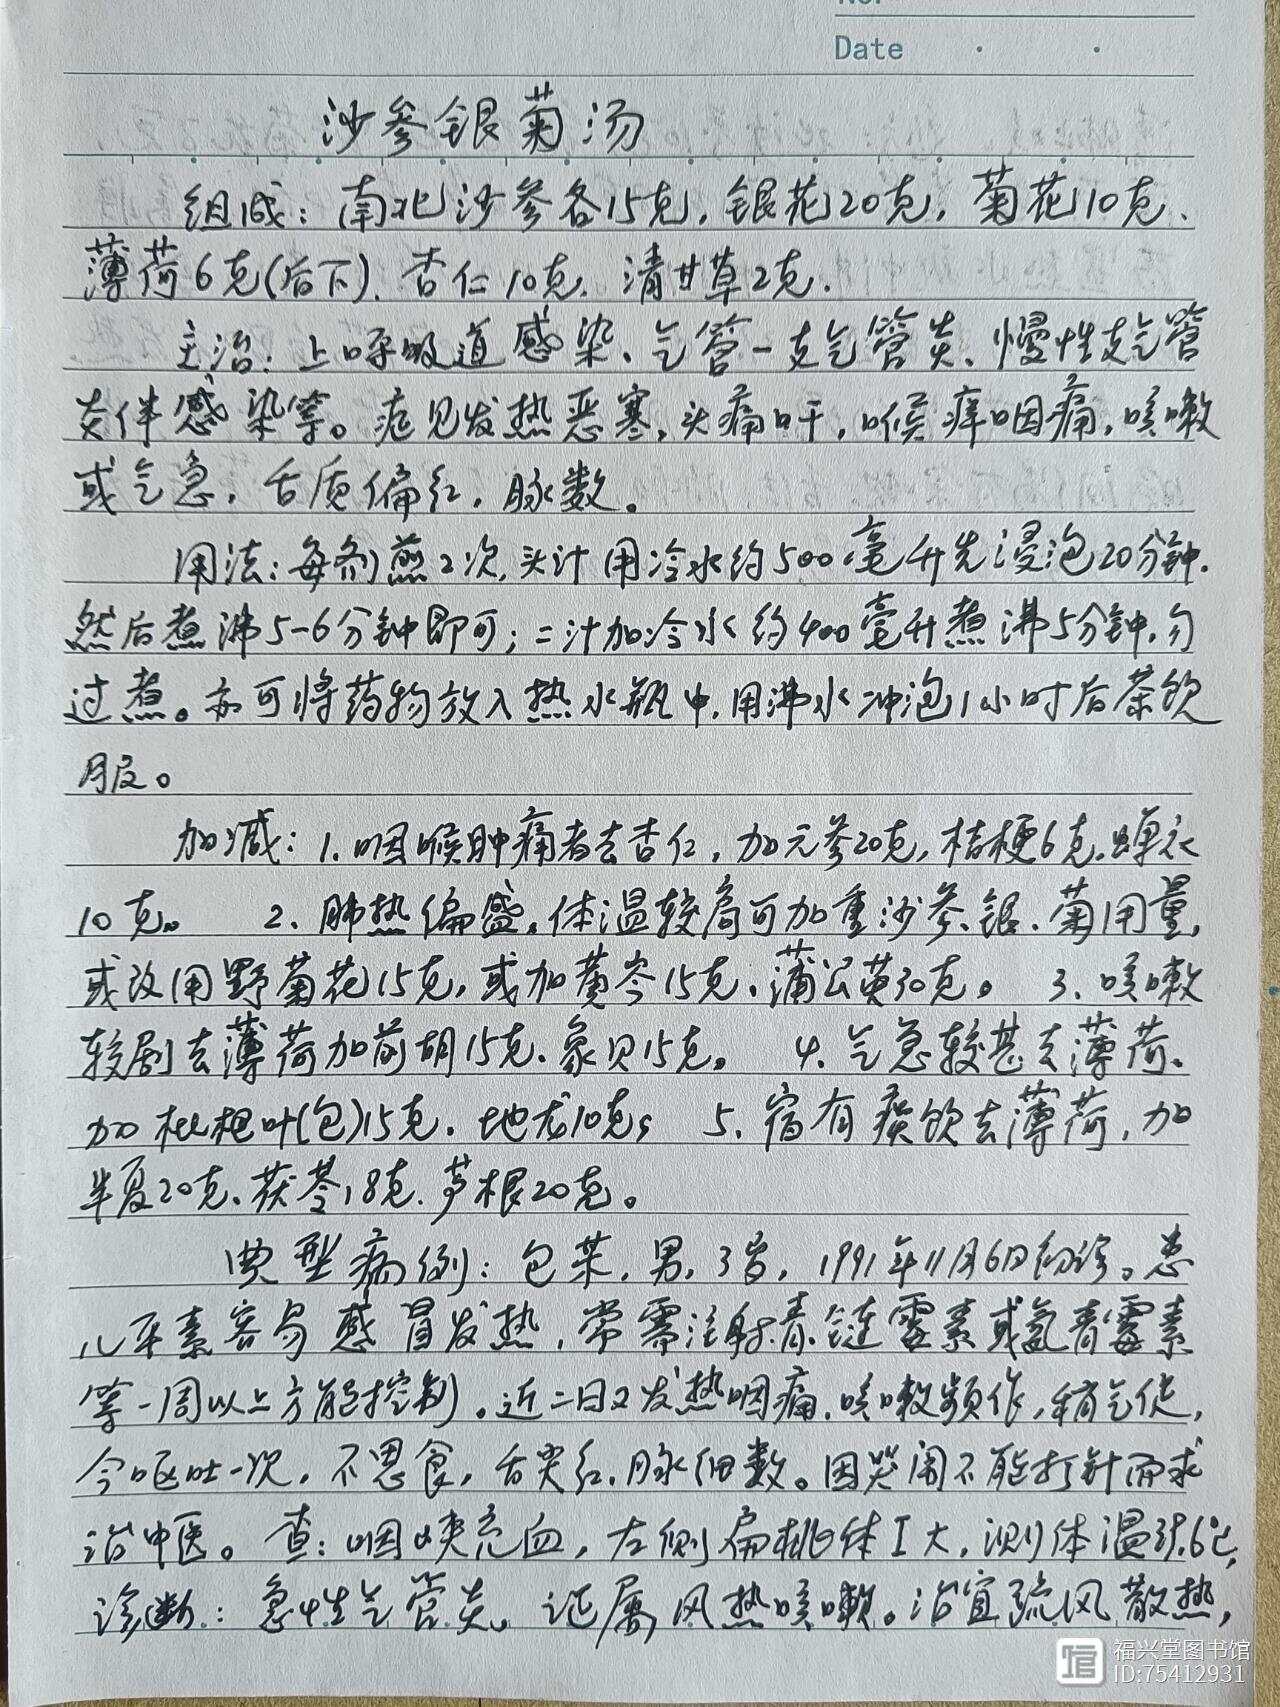 Date
沙参银菊汤
组成：南北沙参各15克，银花20克，菊花10克、
薄荷6克(后下)、杏仁10克、清甘草2克.
主治：上呼吸道感染、气管-支气管炎、慢性支气管
炎伴感染等。症见发热恶寒，头痛口干，喉痒咽痛，咳嗽
或气急，舌质偏红，脉数。
用法：每剂煎2次，头汁用冷水约500毫升先浸泡20分钟.
然后煮沸5-6分钟即可；二汁加冷水约400毫升煮沸5分钟，勿
过煮。亦可将药物放入热水瓶中，用沸水冲泡1小时后茶饮
服。
加减：1.咽喉肿痛者去杏仁，加元参20克，桔梗6克，蝉衣
10克。 2、肺热偏盛，体温较高可加重沙参、银、菊用量，
或改用野菊花15克，或加黄芩15克、蒲公英30克。 3、咳嗽
较剧去薄荷加前胡15克、象贝15克。 4、气急较甚去薄荷、
加枇杷叶(包)15克、地龙10克； 5、宿有痰饮去薄荷，加
半夏20克、茯苓18克、芦根20克。
典型病例：包某，男，3岁，1991年11月6日初诊。患
儿平素容易感冒发热，常需注射青.链霉素或氨苄青霉素
等一周以上方能控制。近二日又发热咽痛，咳嗽频作，稍气促，
今呕吐一次，不思食，舌尖红，脉细数。因哭闹不能打针而求
治中医。查：咽峡充血，左侧扁桃体I大，测体温.6℃，
诊断：急性气管炎。证属风热咳嗽。治宜疏风散热，
福兴堂图书馆
ID:75412931